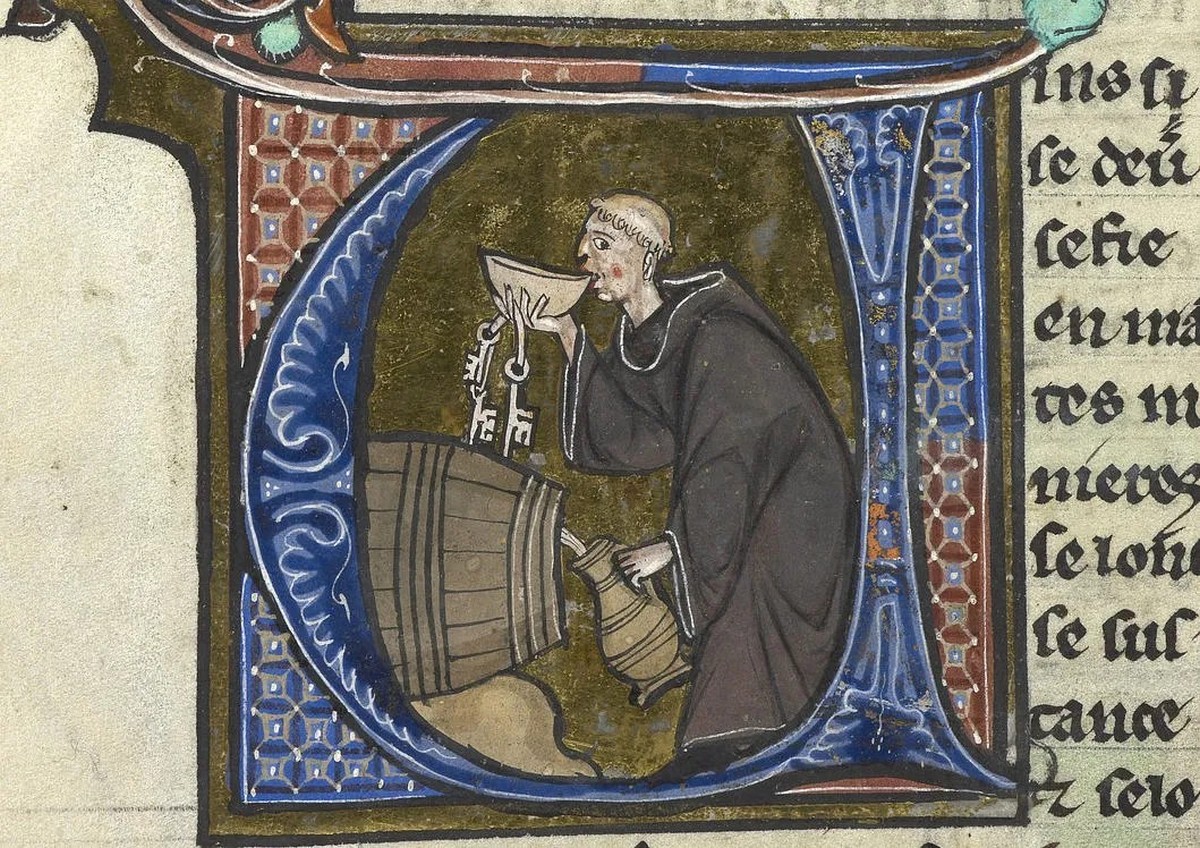 ins si
se deu̅
sefie
en ma
tes m
nieres
se lonc
se sus
tance
⁊ selo